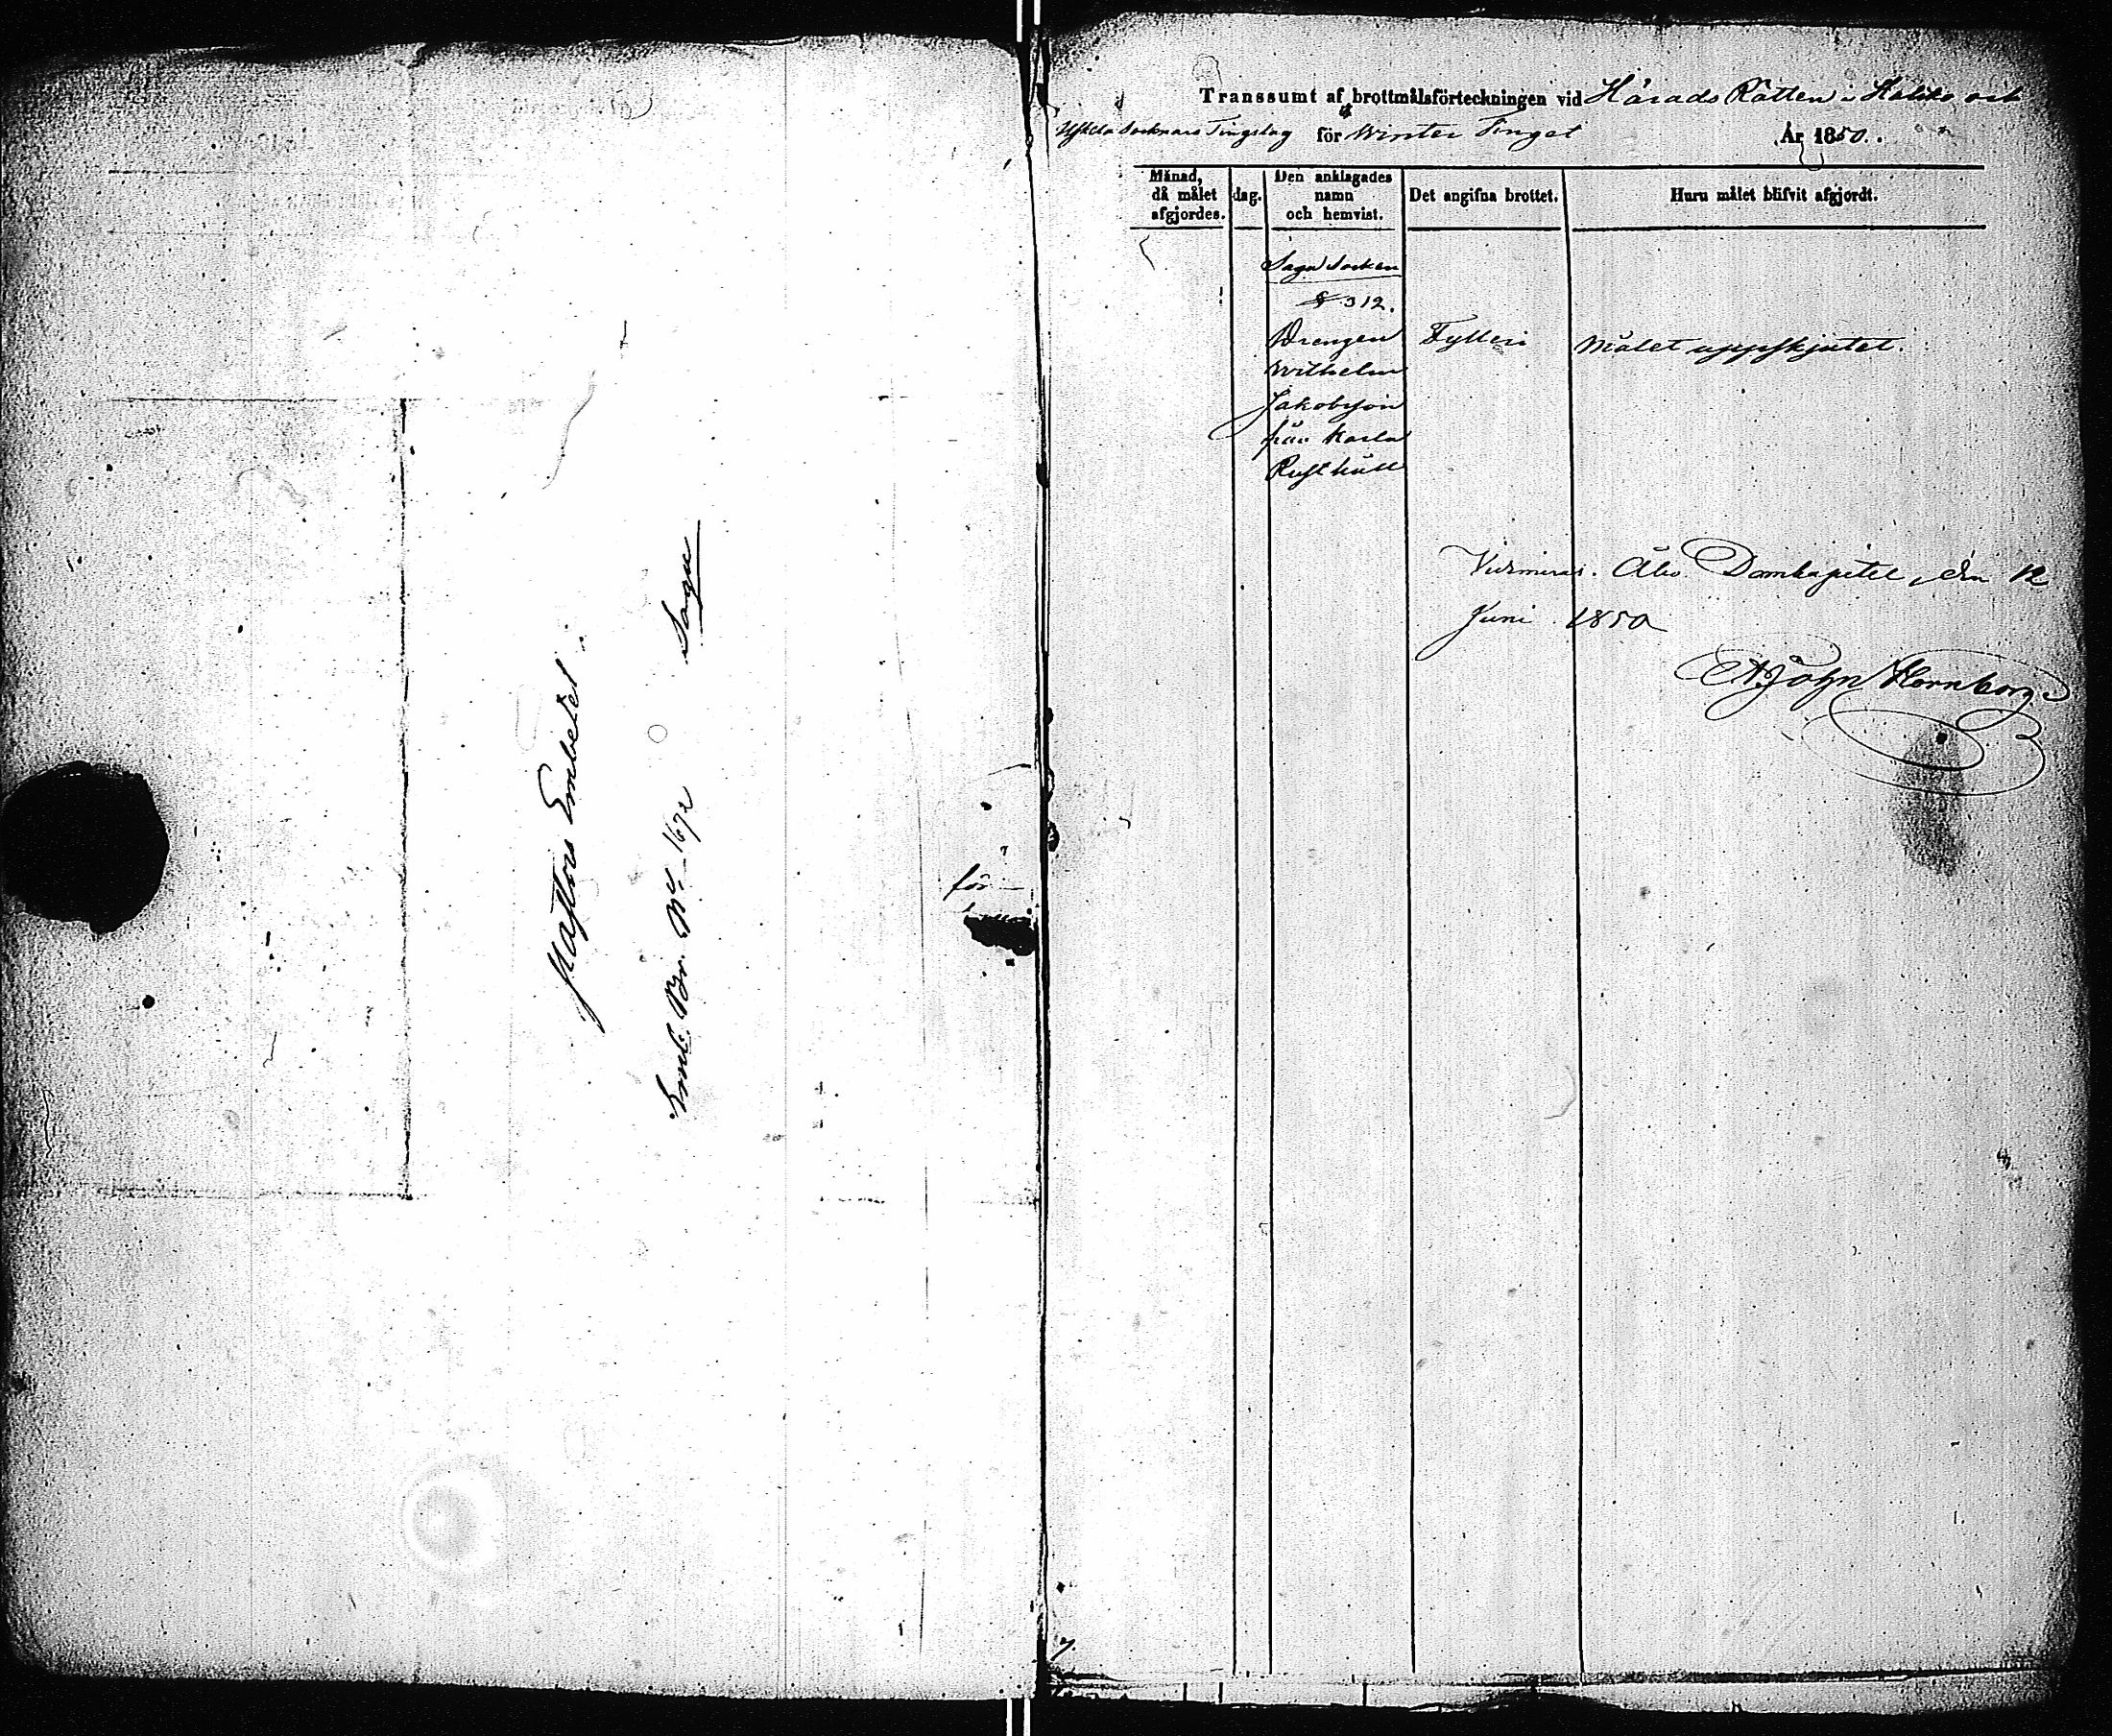 Pastors Embetet
Sagu
Emb. Br. No. 1672
för
Transsumt af brottmålsförteckningen vid Härads Rätten i Haliko och
Uskela Socknars Tingslag för Winter Tinget År 1850.
Månad, då målet afgjordes.
dag.
Den anklagades namn och hemvist.
Det angifna brottet.
Huru målet blifvit afgjordt.
Sagu Socken
§ 312.
Drengen Fylleri Målet uppskjutet.
Wilhelm
Jakobsson
från Karla
Rusthåll
Vidimeras. Åbo Domkapitel, den 12
Juni 1850
John Hornborg